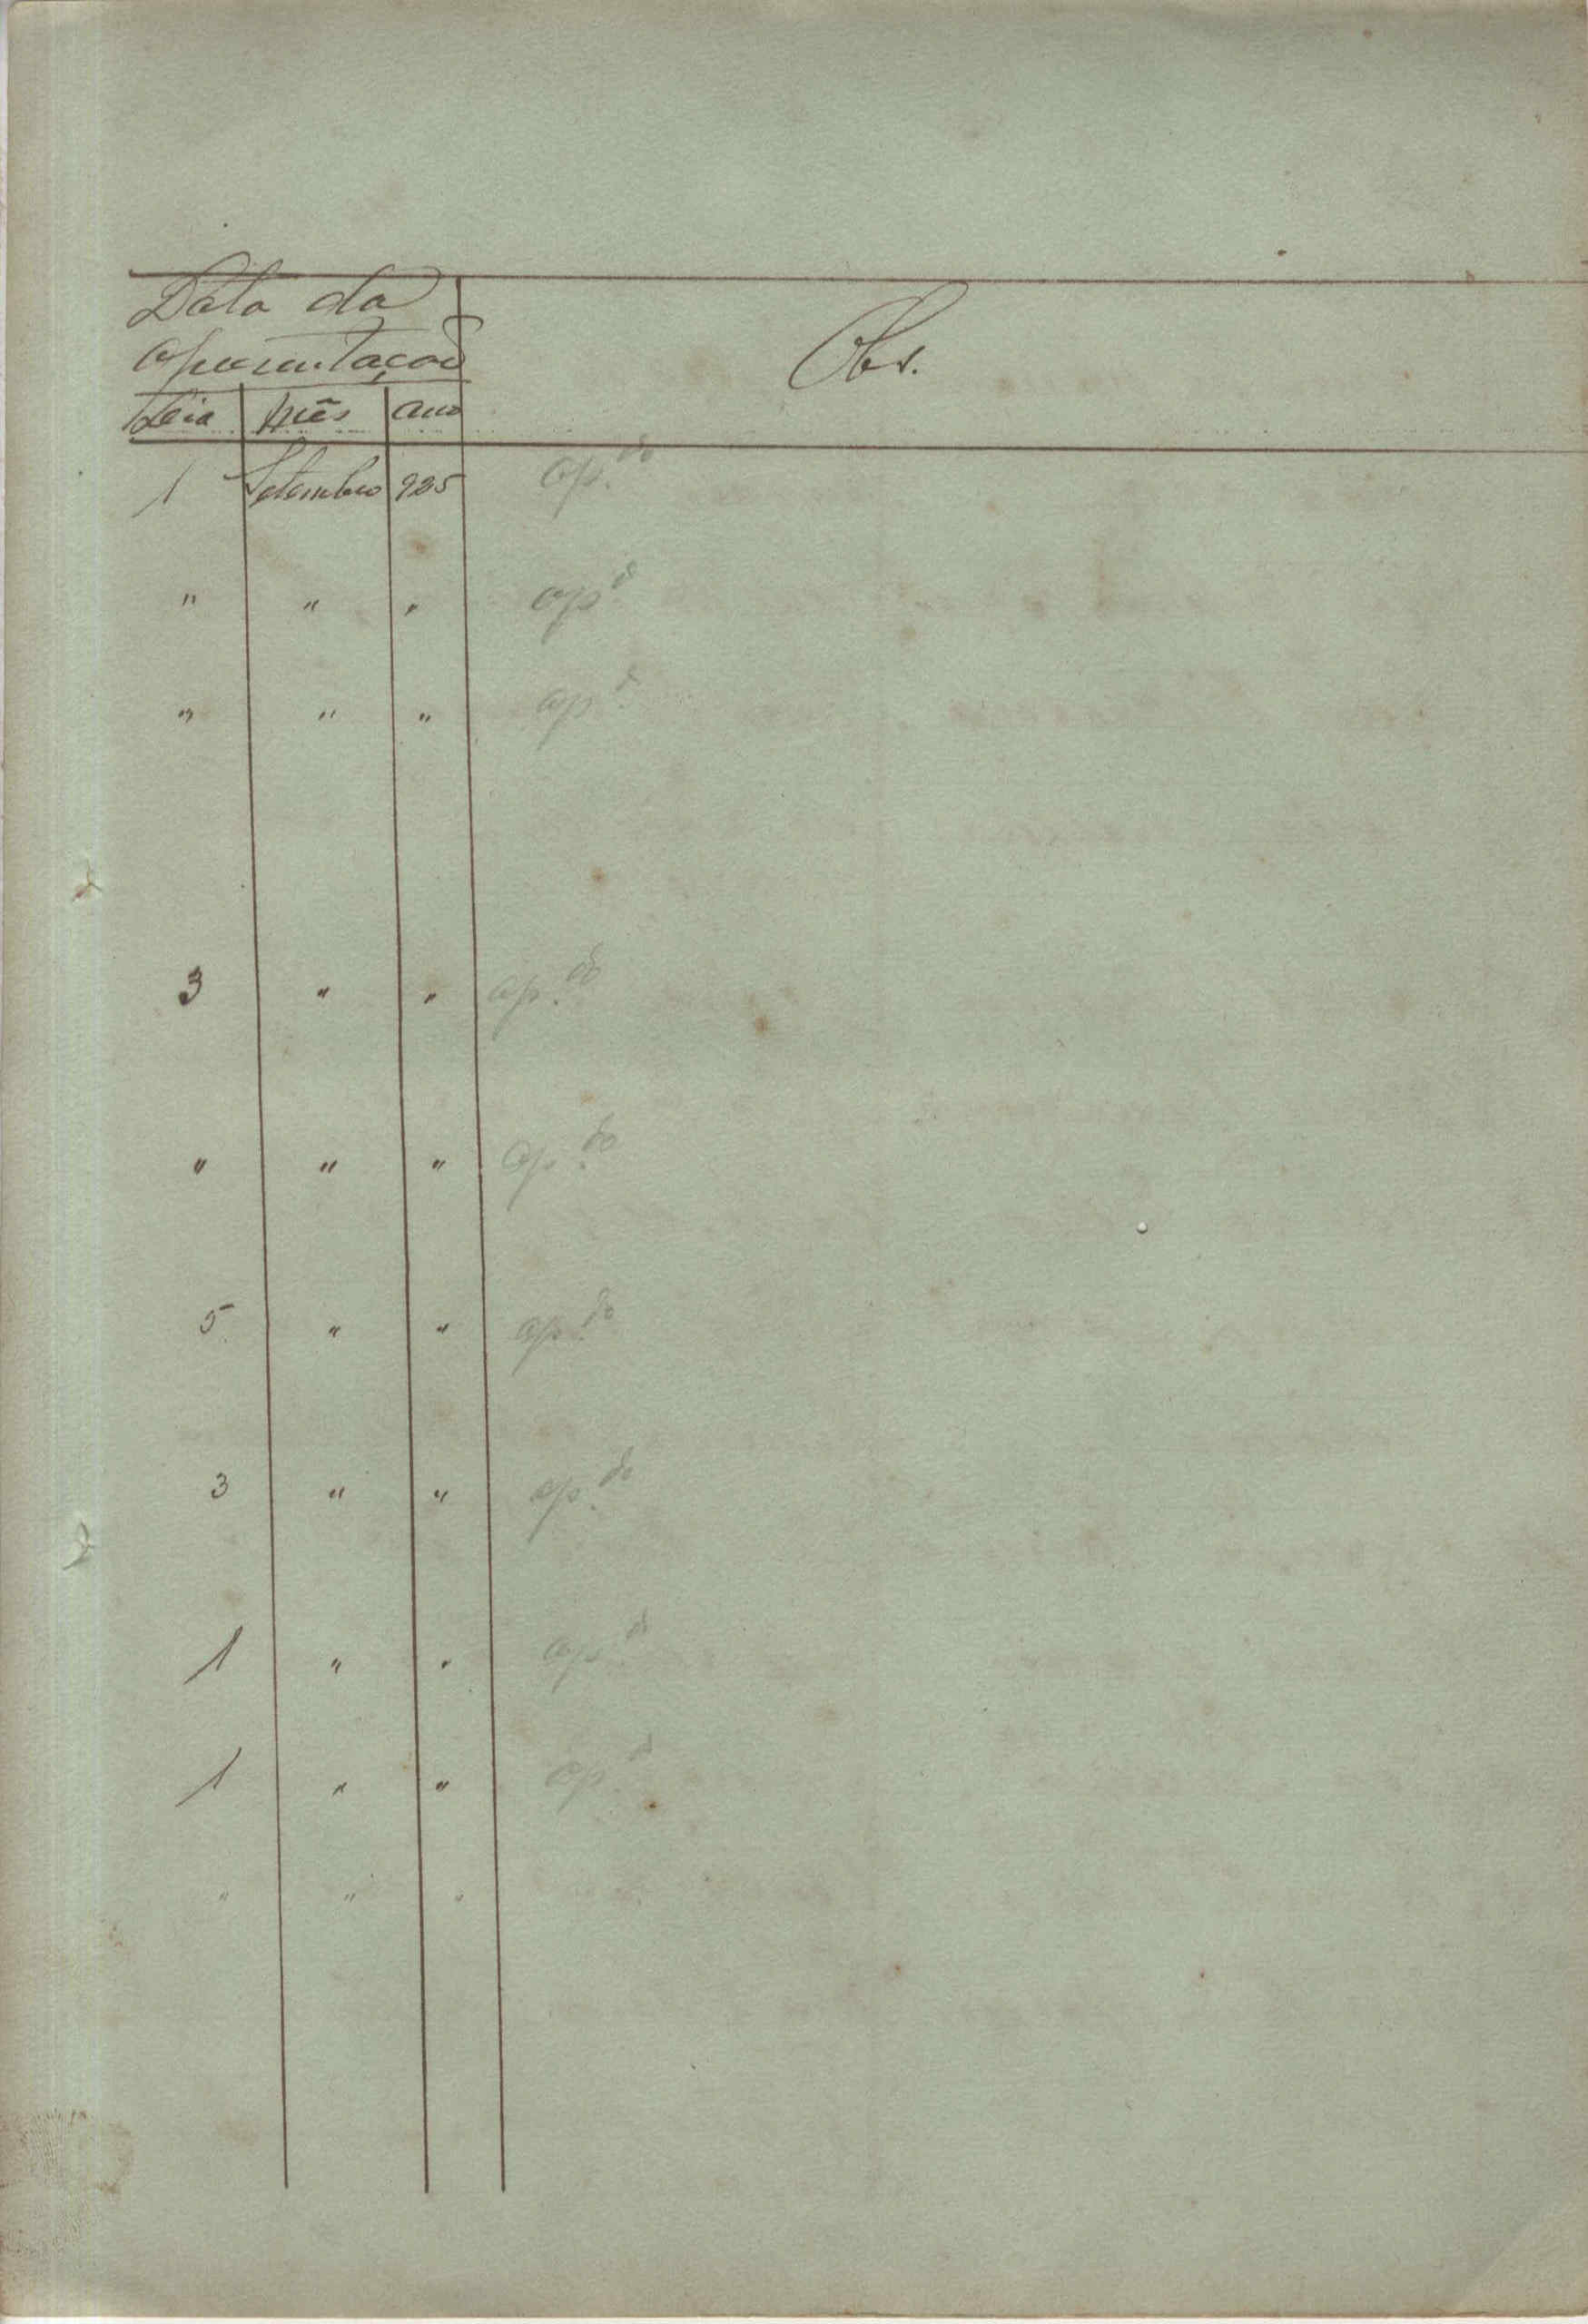 Data da
apresentação
Obs.
Dia mês ano
1 Setembro 925 ap.do
" " " ap.do
" " " ap.do
3 " " ap.do
" " " ap.do
5 " " ap.do
3 " " ap.do
1 " " ap.do
1 " " ap.do
" " "